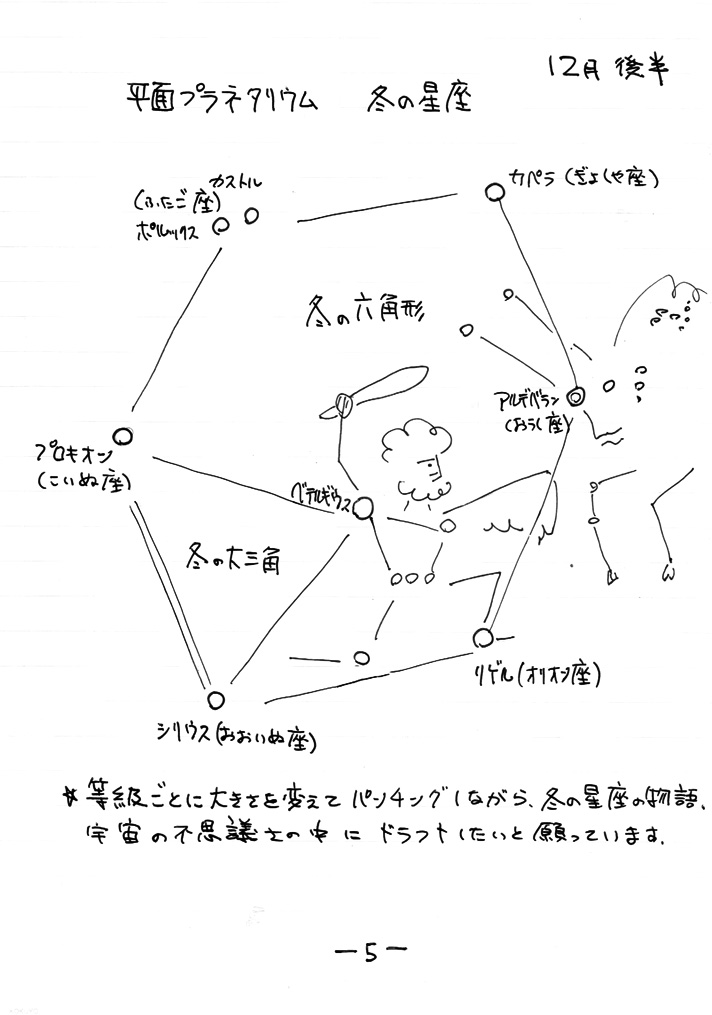 12月 後半
平面プラネタリウム 冬の星座
カストル
(ふたご座)
ポルックス
カペラ (ぎょしゃ座)
冬の六角形
アルデバラン
(おうし座)
プロキオン
(こいぬ座)
ベテルギウス
冬の大三角
リゲル (オリオン座)
シリウス (おおいぬ座)
* 等級ごとに大きさを変えて パンチングしながら、冬の星座の物語、
宇宙の不思議さの中に ドラフトしたいと願っています。
－5－